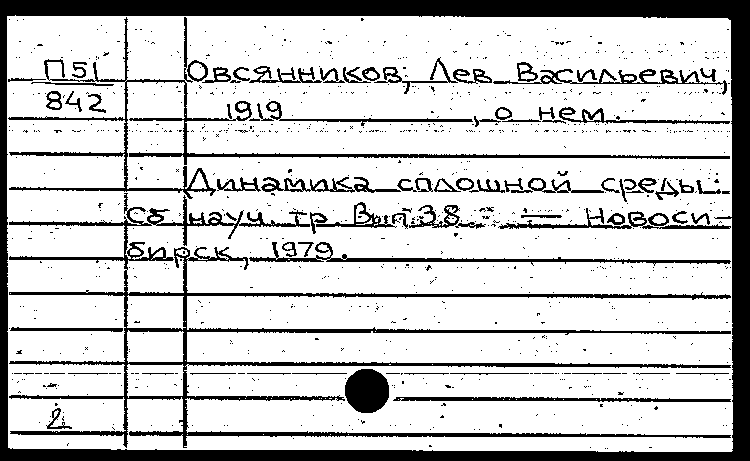 П51
842
Овсянников, Лев Васильевич,
1919 , о нем.
Динамика сплошной среды:
Сб науч. тр. Вып. 38. — Новоси-
бирск, 1979.
2